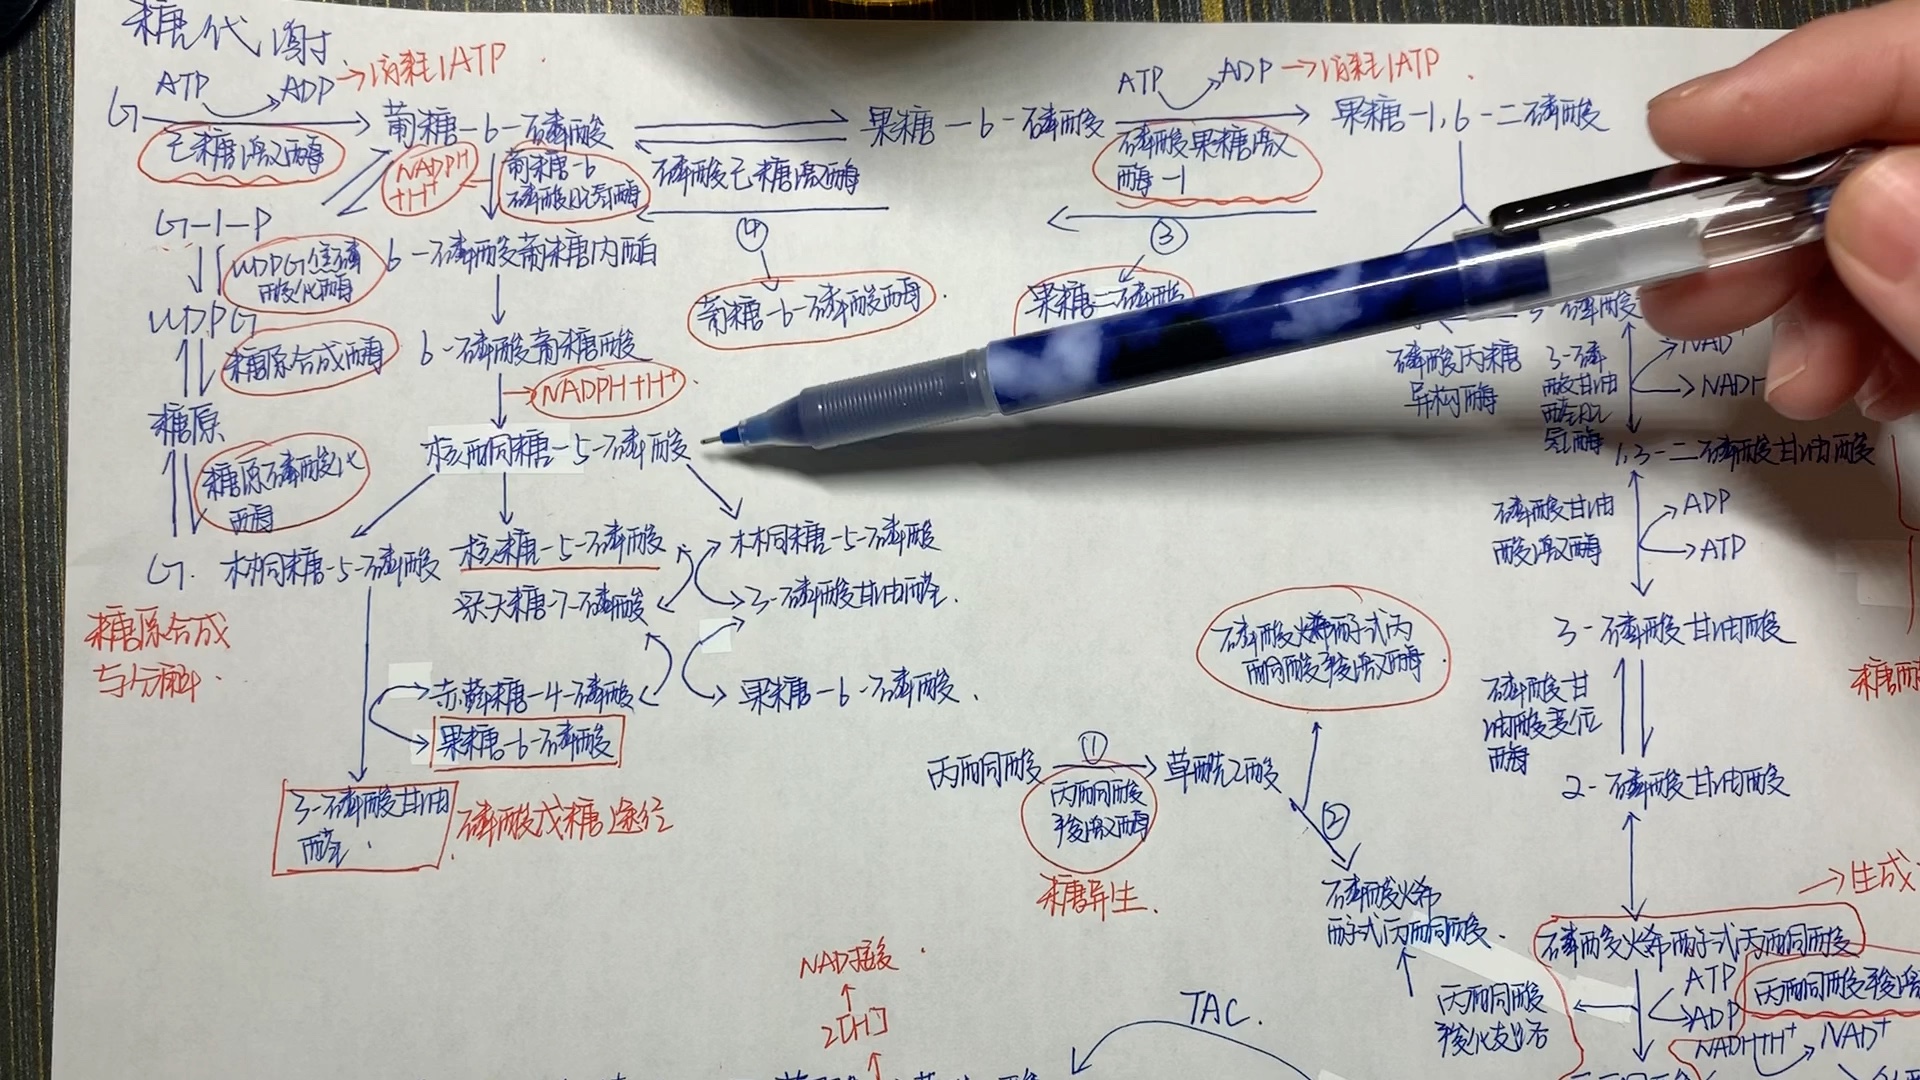 糖代谢
ATP
ADP
→消耗1ATP
G
葡糖-6-磷酸
己糖激酶
NADPH
+H⁺
葡糖-6
磷酸脱氢酶
磷酸己糖激酶
果糖-6-磷酸
ATP
ADP
→消耗1ATP
果糖-1,6-二磷酸
磷酸果糖激
酶-1
④
③
葡糖-6-磷酸酶
果糖二磷酸
G-1-P
UDPG焦磷
酸化酶
6-磷酸葡糖内酯
UDPG
糖原合成酶
6-磷酸葡糖酸
NADPH+H⁺
糖原
糖原磷酸化
酶
核酮糖-5-磷酸
G.
木酮糖-5-磷酸
核糖-5-磷酸
木酮糖-5-磷酸
景天糖-7-磷酸
3-磷酸甘油醛.
糖原合成
与分解.
赤藓糖-4-磷酸
果糖-6-磷酸.
果糖-6-磷酸
3-磷酸甘油
醛.
磷酸戊糖途径
磷酸丙糖
异构酶
3-磷
酸甘油
醛脱
氢酶
NAD⁺
NADH
1,3-二磷酸甘油酸
磷酸甘油
酸激酶
ADP
ATP
3-磷酸甘油酸
磷酸甘
油酸变位
酶
2-磷酸甘油酸
磷酸烯醇式丙
酮酸羧激酶
丙酮酸
①
草酰乙酸
丙酮酸
羧激酶
糖异生.
②
磷酸烯
醇式丙酮酸.
丙酮酸
羧化支路
→生成
磷酸烯醇式丙酮酸
ATP
ADP
丙酮酸羧激
NADH+H⁺
NAD⁺
NAD接受
2[H]
TAC.